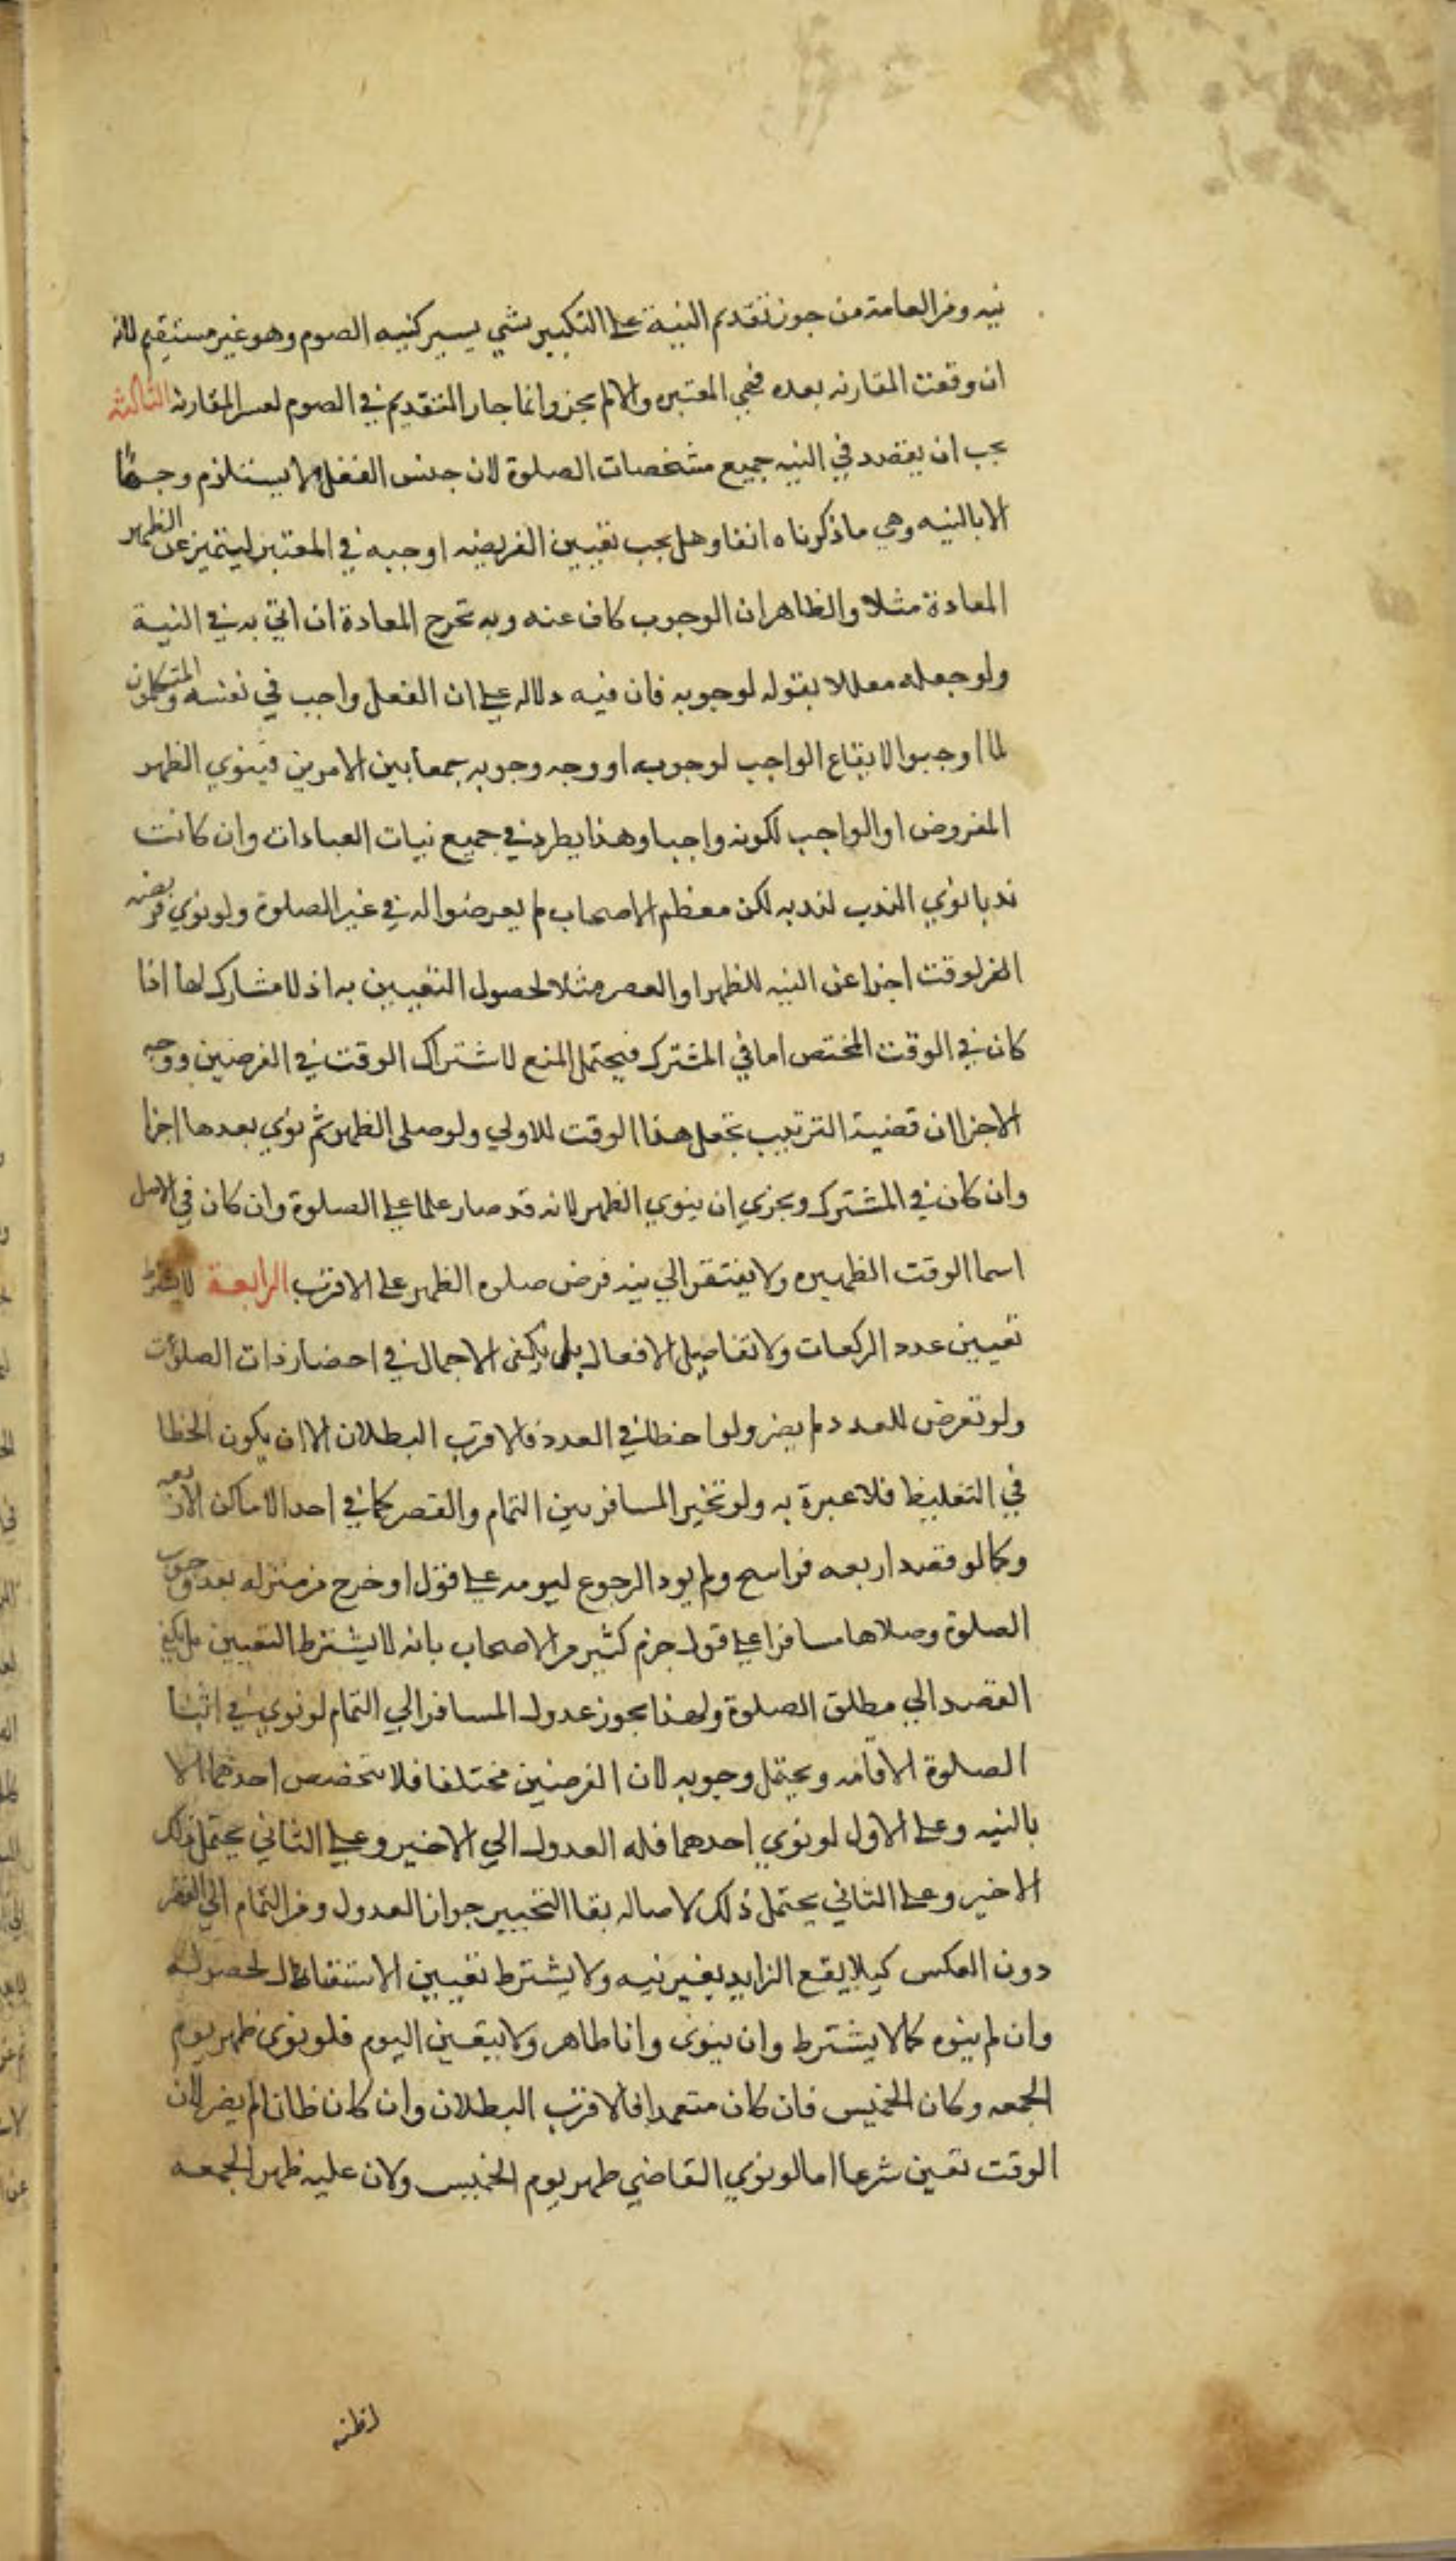 نيه ومن العامة من جوز تقديم النية على التكبير بشي يسير كنيه الصوم وهو غير مستقيم لانه
ان وقعت المقارنه بعده فهي المعتبره والا لم يجز وانما جاز التقديم في الصوم لعسر المقارنه الثالثة
يجب ان يقصد في النيه جميع مشخصات الصلوة لان جنس الفعل لا يستلزم وجـ
الا بالنيه وهي ما ذكرناه انفا وهل يجب تعيين الفريضه اوجبه في المعتبر ليتميز عن الظهر
المعادة مثلا والظاهر ان الوجوب كاف عنه وبه تخرج المعادة ان اتي به في النية
ولو جعله معللا بقوله لوجوبه فان فيه دلاله على ان الفعل واجب في نفسه والمتكلمون
لما اوجبوا الايقاع الواجب لوجوبه او وجه وجوبه جمعا بين الامرين فينوي الظهر
المفروض او الواجب لكونه واجبا وهذا يطرد في جميع نيات العبادات وان كانت
ندبا نوي الندب لندبه لكن معظم الاصحاب لم يعرضوا له في غير الصلوة ولو نوي فريضه
الفرلوقت اجزا عن النيه للظهر او العصر مثلا لحصول التعيين به اذ لا مشارك لها اذا
كان في الوقت المختص اما في المشترك فيحتمل المنع لاشتراك الوقت في الفرضين ووجه
الاجزا ان قضية الترتيب تجعل هذا الوقت للاولي ولو صلى الظهر ثم نوي بعدها اجزا
وان كان في المشترك ويجزي ان ينوي الظهر لانه قد صار علما على الصلوة وان كان في الاصل
اسما الوقت الظهيره ولا يفتقر الي نيه فرض صلوه الظهر على الاقرب الرابعة لا يشترط
تعيين عدد الركعات ولا تفاصيل الافعال بلى يكفى الاجمال في احضار ذات الصلوات
ولو تعرض للعدد لم يضر ولو اخطا في العدد فالاقرب البطلان الا ان يكون الخطا
في التغليظ فلا عبرة به ولو تخير المسافر بين التمام والقصر كما في احد الاماكن الاربعه
وكما لو قصد اربعه فراسح ولم يود الرجوع ليومه على قول او خرج من منزله بعد وجوب
الصلوة وصلاها مسافرا على قول جزم كثير من الاصحاب بانه لا يشترط التعيين بل يكفي
القصد الي مطلق الصلوة ولهذا يجوز عدول المسافر الي التمام لو نوي في اثنا
الصلوة الاقامه ويحتمل وجوبه لان الفرضين مختلفا فلا يتخصص احدهما الا
بالنيه وعلى الاول لو نوي احدهما فله العدول الي الاخير وعلى الثاني يحتمل ذلك
الاخير وعلى الثاني يحتمل ذلك لاصاله بقا التخيير جواز العدول ومن التمام الي القصر
دون العكس كيلا يقع الزايد بغير نيه ولا يشترط تعيين الاستقبال لحصوله
وان لم ينوه كما لا يشترط وان ينوى وانا طاهر ولا يتعين اليوم فلو نوى ظهر يوم
الجمعه وكان الخميس فان كان متعمدا فالاقرب البطلان وان كان ظانا لم يضر لان
الوقت تعين شرعا اما لو نوي القاضي ظهر يوم الخميس ولان عليه ظهر الجمعه